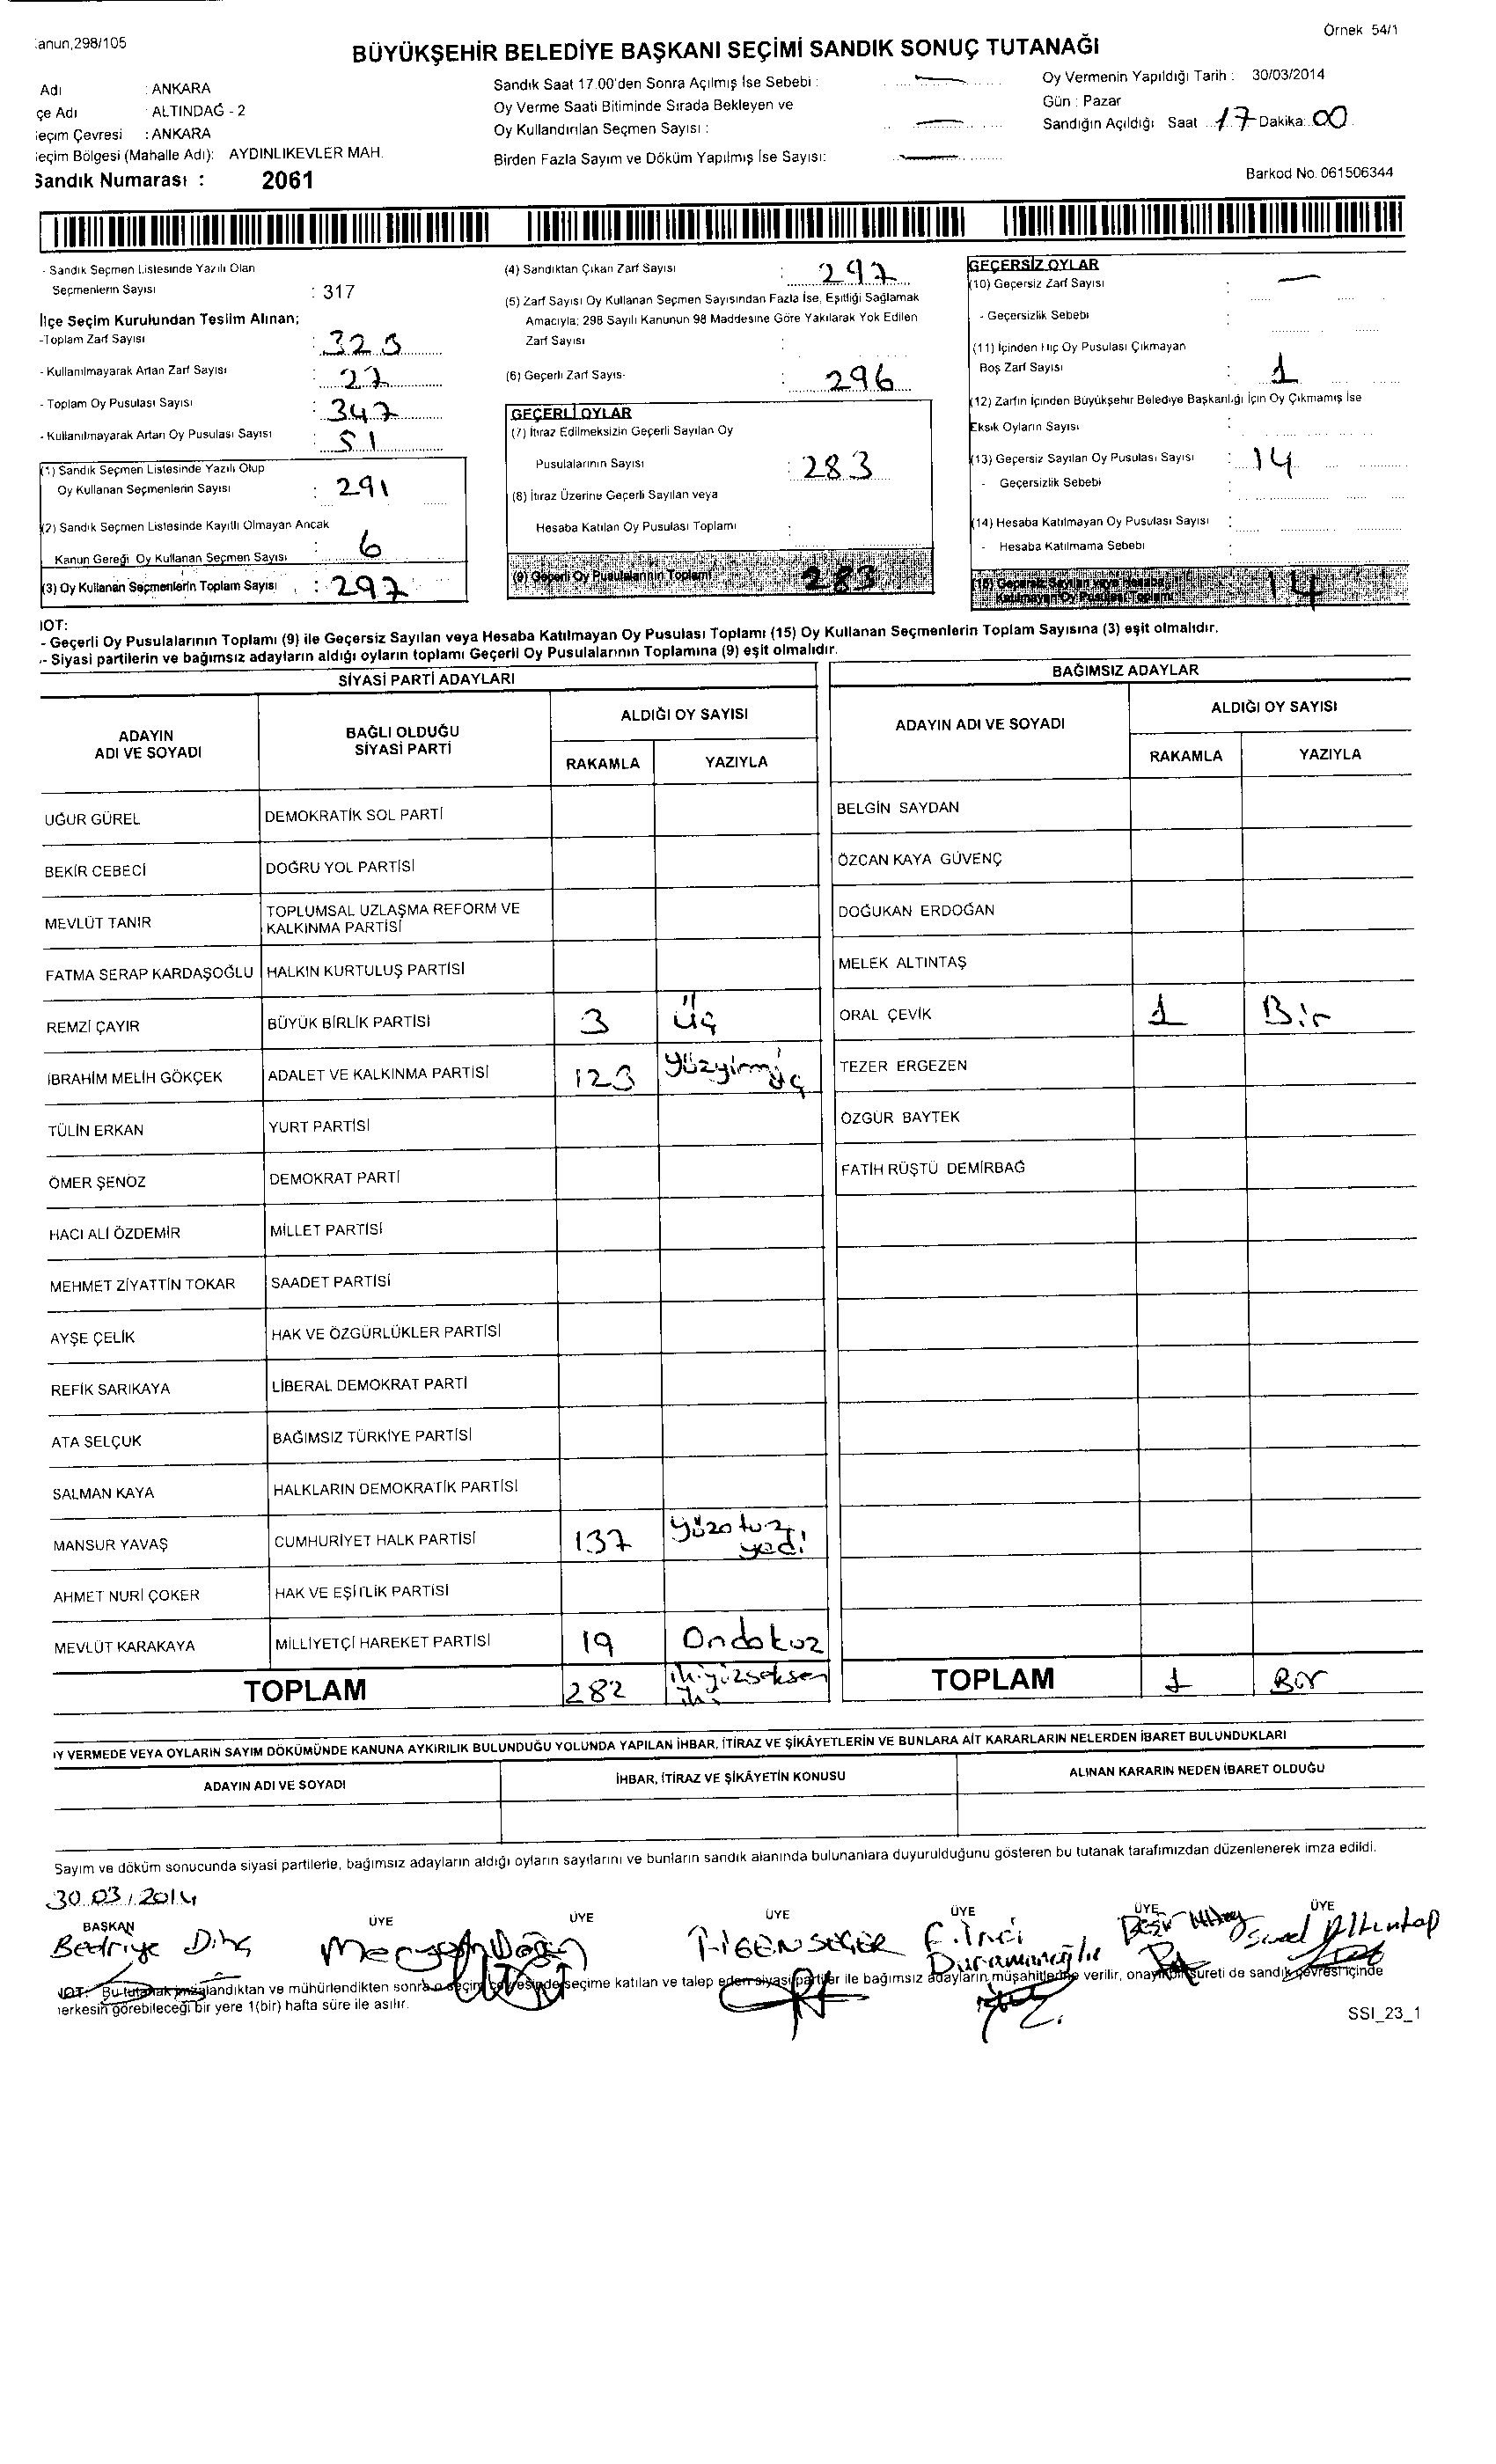 anun,298/105
Örnek 54/1
BÜYÜKŞEHİR BELEDİYE BAŞKANI SEÇİMİ SANDIK SONUÇ TUTANAĞI
Adı : ANKARA
çe Adı : ALTINDAĞ - 2
eçim Çevresi : ANKARA
eçim Bölgesi (Mahalle Adı): AYDINLIKEVLER MAH.
Sandık Numarası : 2061
Sandık Saat 17.00'den Sonra Açılmış İse Sebebi :
Oy Verme Saati Bitiminde Sırada Bekleyen ve
Oy Kullandırılan Seçmen Sayısı :
Birden Fazla Sayım ve Döküm Yapılmış İse Sayısı:
Oy Vermenin Yapıldığı Tarih : 30/03/2014
Gün : Pazar
Sandığın Açıldığı Saat 17 Dakika: 00
Barkod No. 061506344
- Sandık Seçmen Listesinde Yazılı Olan
Seçmenlerin Sayısı : 317
İlçe Seçim Kurulundan Teslim Alınan;
-Toplam Zarf Sayısı : 323
- Kullanılmayarak Artan Zarf Sayısı : 27
- Toplam Oy Pusulası Sayısı : 347
- Kullanılmayarak Artan Oy Pusulası Sayısı : 51
(1) Sandık Seçmen Listesinde Yazılı Olup
Oy Kullanan Seçmenlerin Sayısı : 291
(2) Sandık Seçmen Listesinde Kayıtlı Olmayan Ancak
Kanun Gereği Oy Kullanan Seçmen Sayısı : 6
(3) Oy Kullanan Seçmenlerin Toplam Sayısı : 297
(4) Sandıktan Çıkan Zarf Sayısı : 297
(5) Zarf Sayısı Oy Kullanan Seçmen Sayısından Fazla İse, Eşitliği Sağlamak
Amacıyla; 298 Sayılı Kanunun 98 Maddesine Göre Yakılarak Yok Edilen
Zarf Sayısı :
(6) Geçerli Zarf Sayısı : 296
GEÇERLİ OYLAR
(7) İtiraz Edilmeksizin Geçerli Sayılan Oy
Pusulalarının Sayısı : 283
(8) İtiraz Üzerine Geçerli Sayılan veya
Hesaba Katılan Oy Pusulası Toplamı :
(9) Geçerli Oy Pusulalarının Toplamı 283
GEÇERSİZ OYLAR
(10) Geçersiz Zarf Sayısı : —
- Geçersizlik Sebebi :
(11) İçinden Hiç Oy Pusulası Çıkmayan
Boş Zarf Sayısı : 1
(12) Zarfın İçinden Büyükşehir Belediye Başkanlığı İçin Oy Çıkmamış İse
Eksik Oyların Sayısı :
(13) Geçersiz Sayılan Oy Pusulası Sayısı : 14
- Geçersizlik Sebebi :
(14) Hesaba Katılmayan Oy Pusulası Sayısı :
- Hesaba Katılmama Sebebi :
(15) Geçersiz Sayılan veya Hesaba
Katılmayan Oy Pusulası Toplamı 14
IOT:
- Geçerli Oy Pusulalarının Toplamı (9) ile Geçersiz Sayılan veya Hesaba Katılmayan Oy Pusulası Toplamı (15) Oy Kullanan Seçmenlerin Toplam Sayısına (3) eşit olmalıdır.
- Siyasi partilerin ve bağımsız adayların aldığı oyların toplamı Geçerli Oy Pusulalarının Toplamına (9) eşit olmalıdır.
SİYASİ PARTİ ADAYLARI
ADAYIN ADI VE SOYADI BAĞLI OLDUĞU SİYASİ PARTİ ALDIĞI OY SAYISI
RAKAMLA YAZIYLA
UĞUR GÜREL DEMOKRATİK SOL PARTİ
BEKİR CEBECİ DOĞRU YOL PARTİSİ
MEVLÜT TANIR TOPLUMSAL UZLAŞMA REFORM VE KALKINMA PARTİSİ
FATMA SERAP KARDAŞOĞLU HALKIN KURTULUŞ PARTİSİ
REMZİ ÇAYIR BÜYÜK BİRLİK PARTİSİ 3 Üç
İBRAHİM MELİH GÖKÇEK ADALET VE KALKINMA PARTİSİ 123 yüzyirmiüç
TÜLİN ERKAN YURT PARTİSİ
ÖMER ŞENÖZ DEMOKRAT PARTİ
HACI ALİ ÖZDEMİR MİLLET PARTİSİ
MEHMET ZİYATTİN TOKAR SAADET PARTİSİ
AYŞE ÇELİK HAK VE ÖZGÜRLÜKLER PARTİSİ
REFİK SARIKAYA LİBERAL DEMOKRAT PARTİ
ATA SELÇUK BAĞIMSIZ TÜRKİYE PARTİSİ
SALMAN KAYA HALKLARIN DEMOKRATİK PARTİSİ
MANSUR YAVAŞ CUMHURİYET HALK PARTİSİ 137 yüzotuz yedi
AHMET NURİ ÇOKER HAK VE EŞİTLİK PARTİSİ
MEVLÜT KARAKAYA MİLLİYETÇİ HAREKET PARTİSİ 19 Ondokuz
TOPLAM 282 ikiyüzseksen iki
BAĞIMSIZ ADAYLAR
ADAYIN ADI VE SOYADI ALDIĞI OY SAYISI
RAKAMLA YAZIYLA
BELGİN SAYDAN
ÖZCAN KAYA GÜVENÇ
DOĞUKAN ERDOĞAN
MELEK ALTINTAŞ
ORAL ÇEVİK 1 Bir
TEZER ERGEZEN
ÖZGÜR BAYTEK
FATİH RÜŞTÜ DEMİRBAĞ
TOPLAM 1 Bir
Y VERMEDE VEYA OYLARIN SAYIM DÖKÜMÜNDE KANUNA AYKIRILIK BULUNDUĞU YOLUNDA YAPILAN İHBAR, İTİRAZ VE ŞİKÂYETLERİN VE BUNLARA AİT KARARLARIN NELERDEN İBARET BULUNDUKLARI
ADAYIN ADI VE SOYADI İHBAR, İTİRAZ VE ŞİKÂYETİN KONUSU ALINAN KARARIN NEDEN İBARET OLDUĞU
Sayım ve döküm sonucunda siyasi partilerle, bağımsız adayların aldığı oyların sayılarını ve bunların sandık alanında bulunanlara duyurulduğunu gösteren bu tutanak tarafımızdan düzenlenerek imza edildi.
30.03.2014
BAŞKAN ÜYE ÜYE ÜYE ÜYE ÜYE ÜYE
Bedriye Dinç
F. İnci
IOT: Bu tutanak imzalandıktan ve mühürlendikten sonra o seçim çevresinde seçime katılan ve talep eden siyasi partiler ile bağımsız adayların müşahitlerine verilir, onaylı bir sureti de sandık çevresi içinde
herkesin görebileceği bir yere 1(bir) hafta süre ile asılır.
SSI_23_1